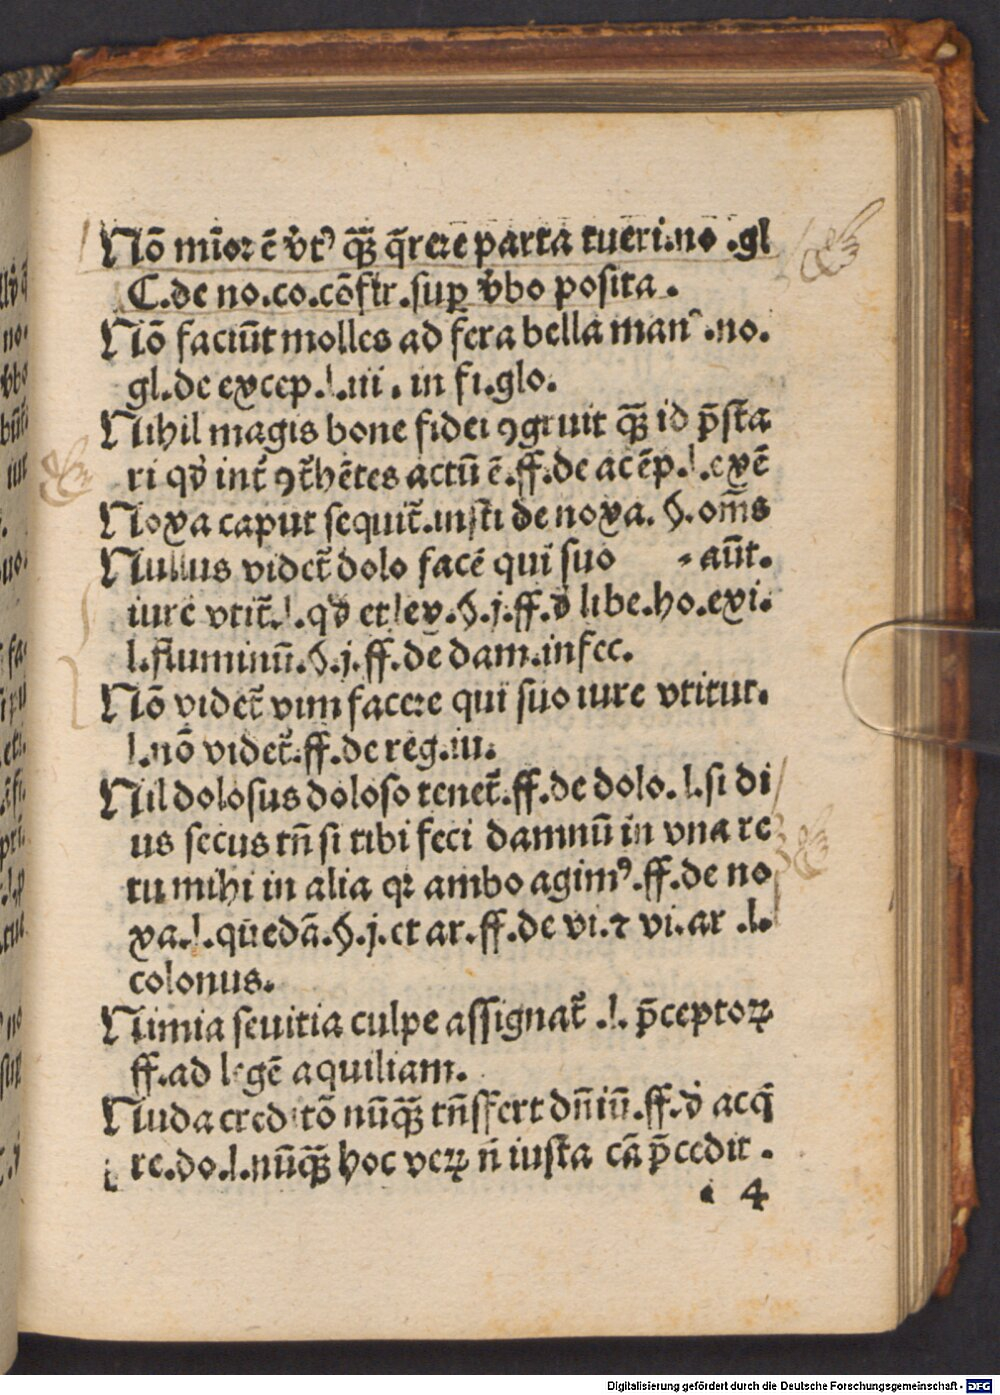 Nō mīor ē v̄tꝰ qꝫ̄ q̄rere parta tueri.no .gl
C.de no.co.cōfir.suꝑ v̄bo posita.
Nō faciūt molles ad fera bella manꝰ.no.
gl.de excep.l.iii. in fi.glo.
Nihil magis bone fidei ꝯgruit qꝫ̄ id p̄sta
ri qd̄ int̄ ꝯt̄hētes actū ē.ff.de ac ēp.l.exē
Noxa caput sequit̄.insti de noxa. §. om̄s
Nullus videt̄ dolo facē qui suo aūt.
iure vtit̄.l.qd̄ et lex.§.j.ff.d̄ libe.ho.exi.
l.fluminū.§.j.ff.de dam.infec.
Nō videt̄ vim facere qui suo iure vtitur.
l.nō videt̄.ff.de reg.iu.
Nil dolosus doloso tenet̄.ff.de dolo. l.si di
us secus tn̄ si tibi feci damnū in vna re
tu mihi in alia qꝛ ambo agimꝰ.ff.de no
xa.l.quedā.§.j.et ar.ff.de vi.⁊ vi.ar .l.
colonus.
Nimia seuitia culpe assignat̄ .l. p̄ceptoꝝ
ff.ad legē aquiliam.
Nuda creditō nūqꝫ̄ tn̄sfert dn̄iū.ff.d̄ acq̄
re.do.l.nūqꝫ̄ hoc veꝝ n̄ iusta cā p̄cedit .
4
Digitalisierung gefördert durch die Deutsche Forschungsgemeinschaft - DFG